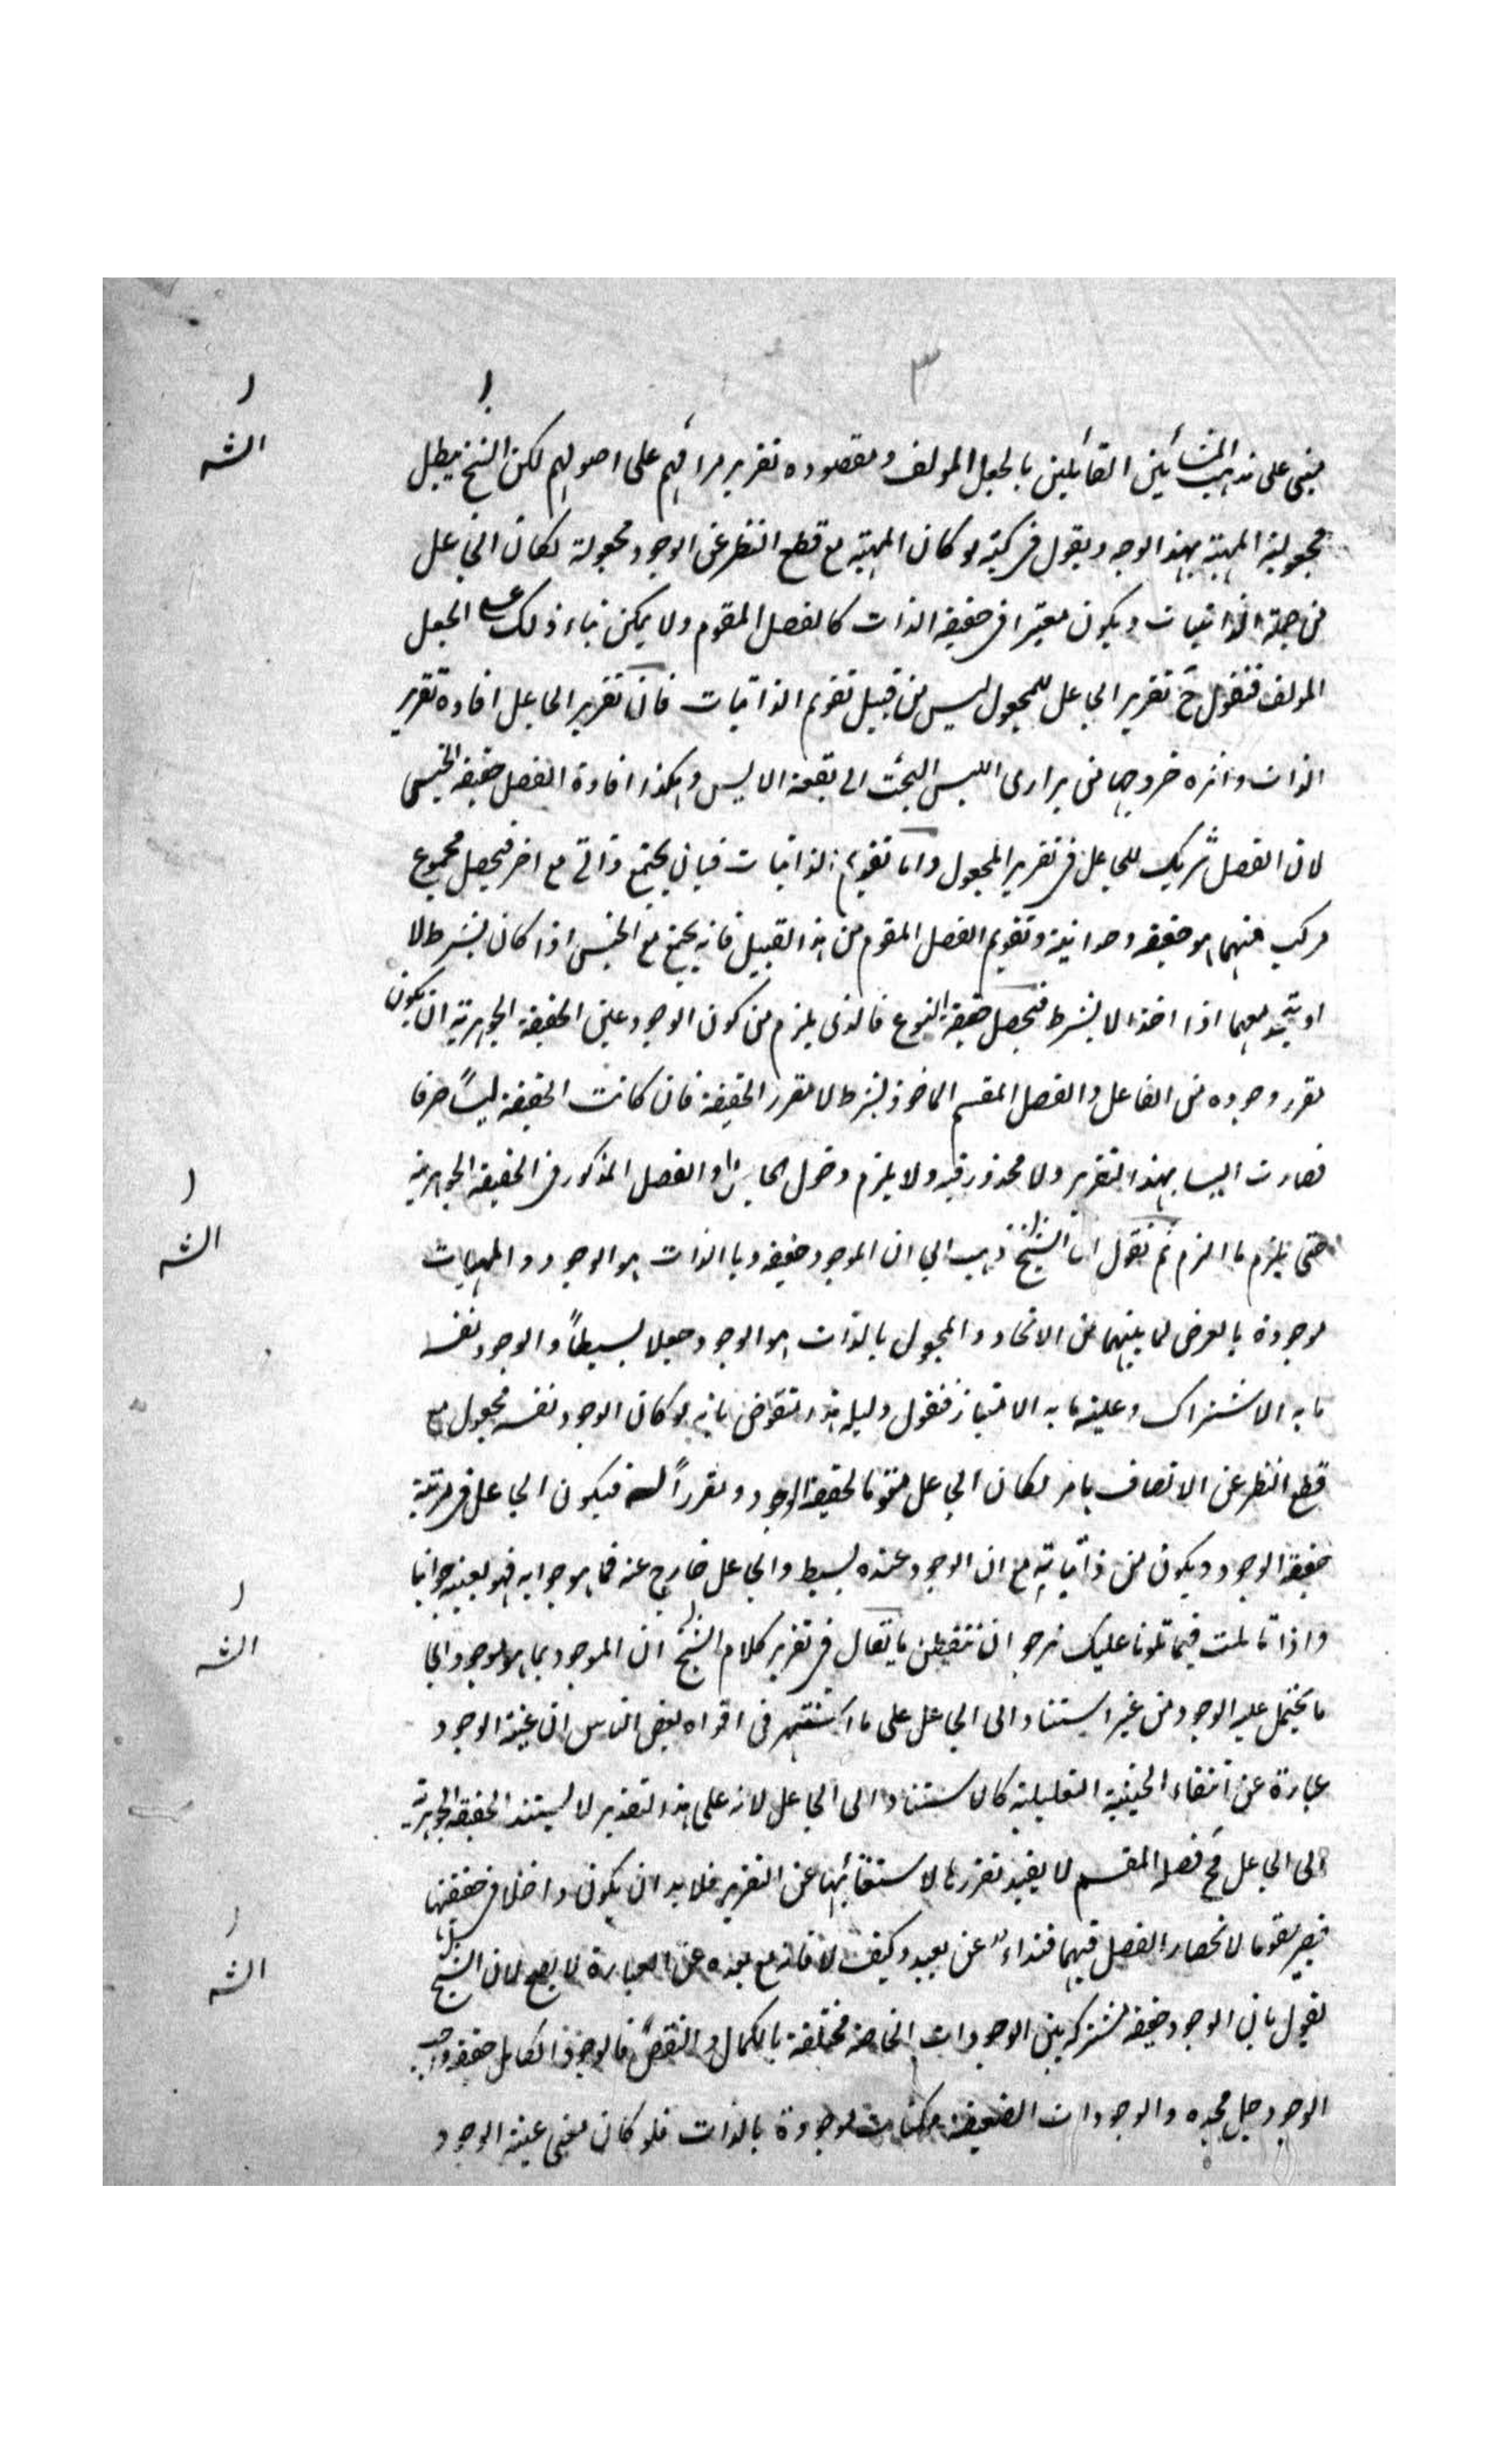 ٣
مبنى على مذهب المشائين القائلين بالجعل المولف ومقصوده تقرير مرامهم على اصولهم لكن الشيخ يبطل
مجعولية المهية بهذا الوجه ويقول فى كتبه لو كان المهية مع قطع النظر عن الوجود مجعولة لكان الجاعل
من جملة الذاتيات ويكون معتبرا فى حقيقة الذات كالفصل المقوم ولا يمكن بناء ذلك على الجعل
المولف فنقول ح تقرير الجاعل للمجعول ليس من قبيل تقويم الذاتيات فان تقرير الجاعل افادة تقرير
الذات واثره خروجها من برارى الليس البحت الى بقعة الايس وهكذا افادة الفصل حقيقة الجنس
لان الفصل شريك للجاعل فى تقرير المجعول واما تقويم الذاتيات فبان يجتمع ذاتى مع اخر فيحصل مجموع
مركب منهما هو حقيقة وحدانية وتقويم الفصل المقوم من هذا القبيل فانه يجتمع مع الجنس اذا كان بشرط لا
او يتحد معهما اذا اخذ لا بشرط فيحصل حقيقة النوع فالذى يلزم من كون الوجود عين الحقيقة الجوهرية ان يكون
تقرر وجوده من الفاعل والفصل المقسم الماخوذ بشرط لا تقرر الحقيقة فان كانت الحقيقة ليسًا صرفا
فصارت ايسا بهذا التقرير ولا محذور فيه ولا يلزم دخول الجاعل او الفصل المذكور فى الحقيقة الجوهرية
حتى يلزم ما الزم ثم نقول ان الشيخ ذهب الى ان الموجود حقيقة وبالذات هو الوجود والمهيات
موجودة بالعرض لما بينهما من الاتحاد والمجعول بالذات هو الوجود جعلا بسيطاً والوجود نفسه
ما به الاشتراك وعينه ما به الامتياز فنقول دليله هذا منقوض بانه لو كان الوجود نفسه مجعول مع
قطع النظر عن الاتصاف بامر لكان الجاعل مقوما لحقيقة الوجود ومقرراً له فيكون الجاعل فى مرتبة
حقيقة الوجود ويكون من ذاتياته مع ان الوجود عنده بسيط والجاعل خارج عنه فما هو جوابه فهو بعينه جوابنا
واذا تاملت فيما تلونا عليك نرجو ان تتفطن ما يقال فى تقرير كلام الشيخ ان الموجود بما هو موجود
ما يحمل عليه الوجود من غير استناد الى الجاعل على ما اشتهر فى افواه بعض الناس ان عينية الوجود
عبارة عن انتفاء الحيثية التعليلية كالاستناد الى الجاعل لانه على هذا التقدير لا يستند الحقيقة الجوهرية
الى الجاعل فح فصله المقسم لا يفيد تقررها لاستغنائها عن التقرير فلا بد ان يكون داخلا فى حقيقتها
فيصير مقوما لانحصار الفصل فيهما فنداء عن بعيد وكيف لا فانه مع بعده عن العبارة لا يصح لان الشيخ
يقول بان الوجود حقيقة مشتركة بين الوجودات الخاصة مختلفة بالكمال والنقص فالوجود الكامل حقيقة واجب
الوجود جل مجده والوجودات الضعيفة ممكنات موجودة بالذات فلو كان معنى عينية الوجود
الش
الش
الش
الش